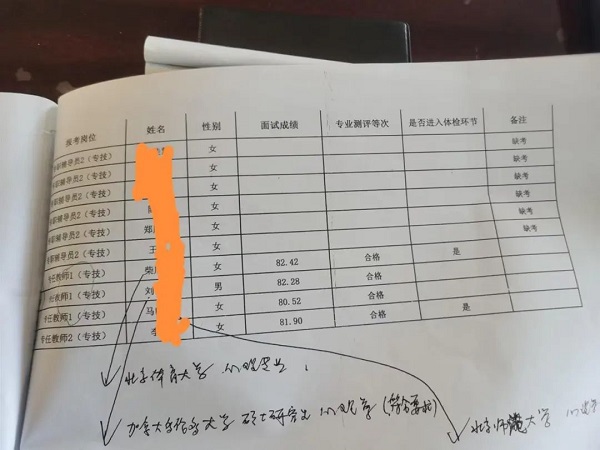 报考岗位 姓名 性别 面试成绩 专业测评等次 是否进入体检环节 备注
职辅导员2（专技） 女 缺考
职辅导员2（专技） 女 缺考
职辅导员2（专技） 女 缺考
职辅导员2（专技） 女 缺考
职辅导员2（专技） 郑 女 缺考
职辅导员2（专技） 王 女
专任教师1（专技） 柴 女 82.42 合格 是
任教师1（专技） 刘 男 82.28 合格
专任教师1（专技） 马 女 80.52 合格
专任教师2（专技） 李 女 81.90 合格 是
北京体育大学 心理专业
加拿大 大学 硕士研究生 心理学（符合要求）
北京师范大学 心理